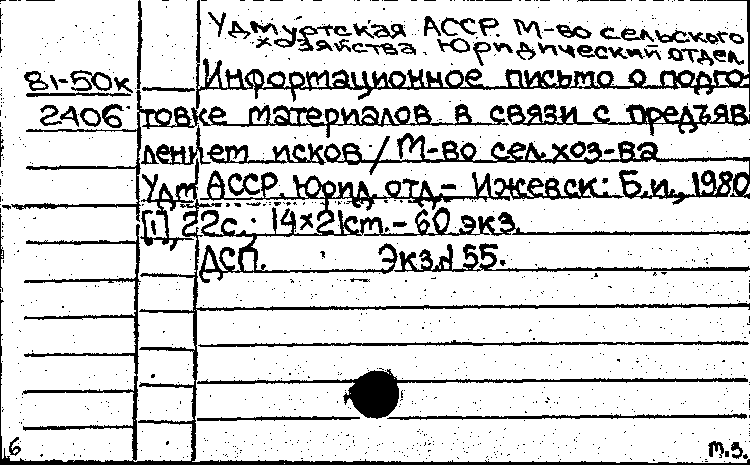 Удмуртская АССР. М-во сельского
хозяйства. Юридический отдел
81-50к Информационное письмо о подго-
2406 товке материалов в связи с предъяв
лением исков / М-во сел. хоз-ва
Удм АССР. Юрид. отд.- Ижевск: Б.и., 1980
[1], 22с.; 14×21см.- 60 экз.
ДСП. Экз.№ 55.
6 т.з.